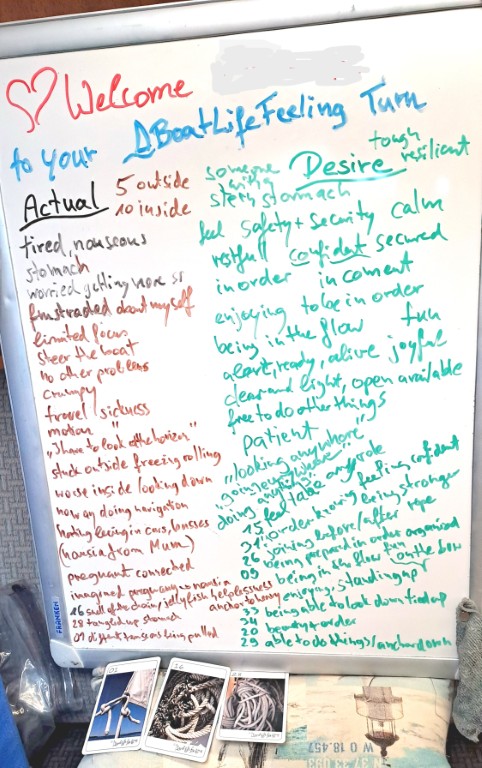 Welcome
to your ΔBoatLifeFeeling Turn
Actual
5 outside
10 inside
tired, nauseous
stomach
worried getting more
frustrated about myself
limited focus
steer the boat
no other problems
crumpy
travel sickness
motion
"I have to look at the horizon"
stuck outside freezing rolling
worse inside /looking down
no way doing navigation
hating beeing in cars, busses
(nausia from Mum)
pregnant connected
imagined pregnancy = nausia
16 smell of the chain / jellyfish helplessness
anchor to heavy
28 tangled up stomach
01 different tensions being pulled
someone with
stern stomach
Desire
tough
resiliant
feel safety + security calm
restfull confident secured
in order in coment
enjoying to be in order
being in the flow fun
alert, ready, alive joyful
clear and light, open available
free to do other things
patient
"looking anywhere"
doing anything
15 feel table any role
31 order knowing feeling confident
being stronger
26 joining before/after rope
09 being prepared in order organised
being in the flow fun on the bow
enjoying, standing up
33 being able to look down tied up
34
20 beauty + order
29 able to do things / anchor down
FRANKEN
W 0 18.457
37 23 093